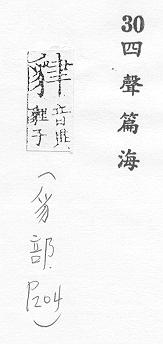 30四聲篇海
音
子
(豸部 P204)